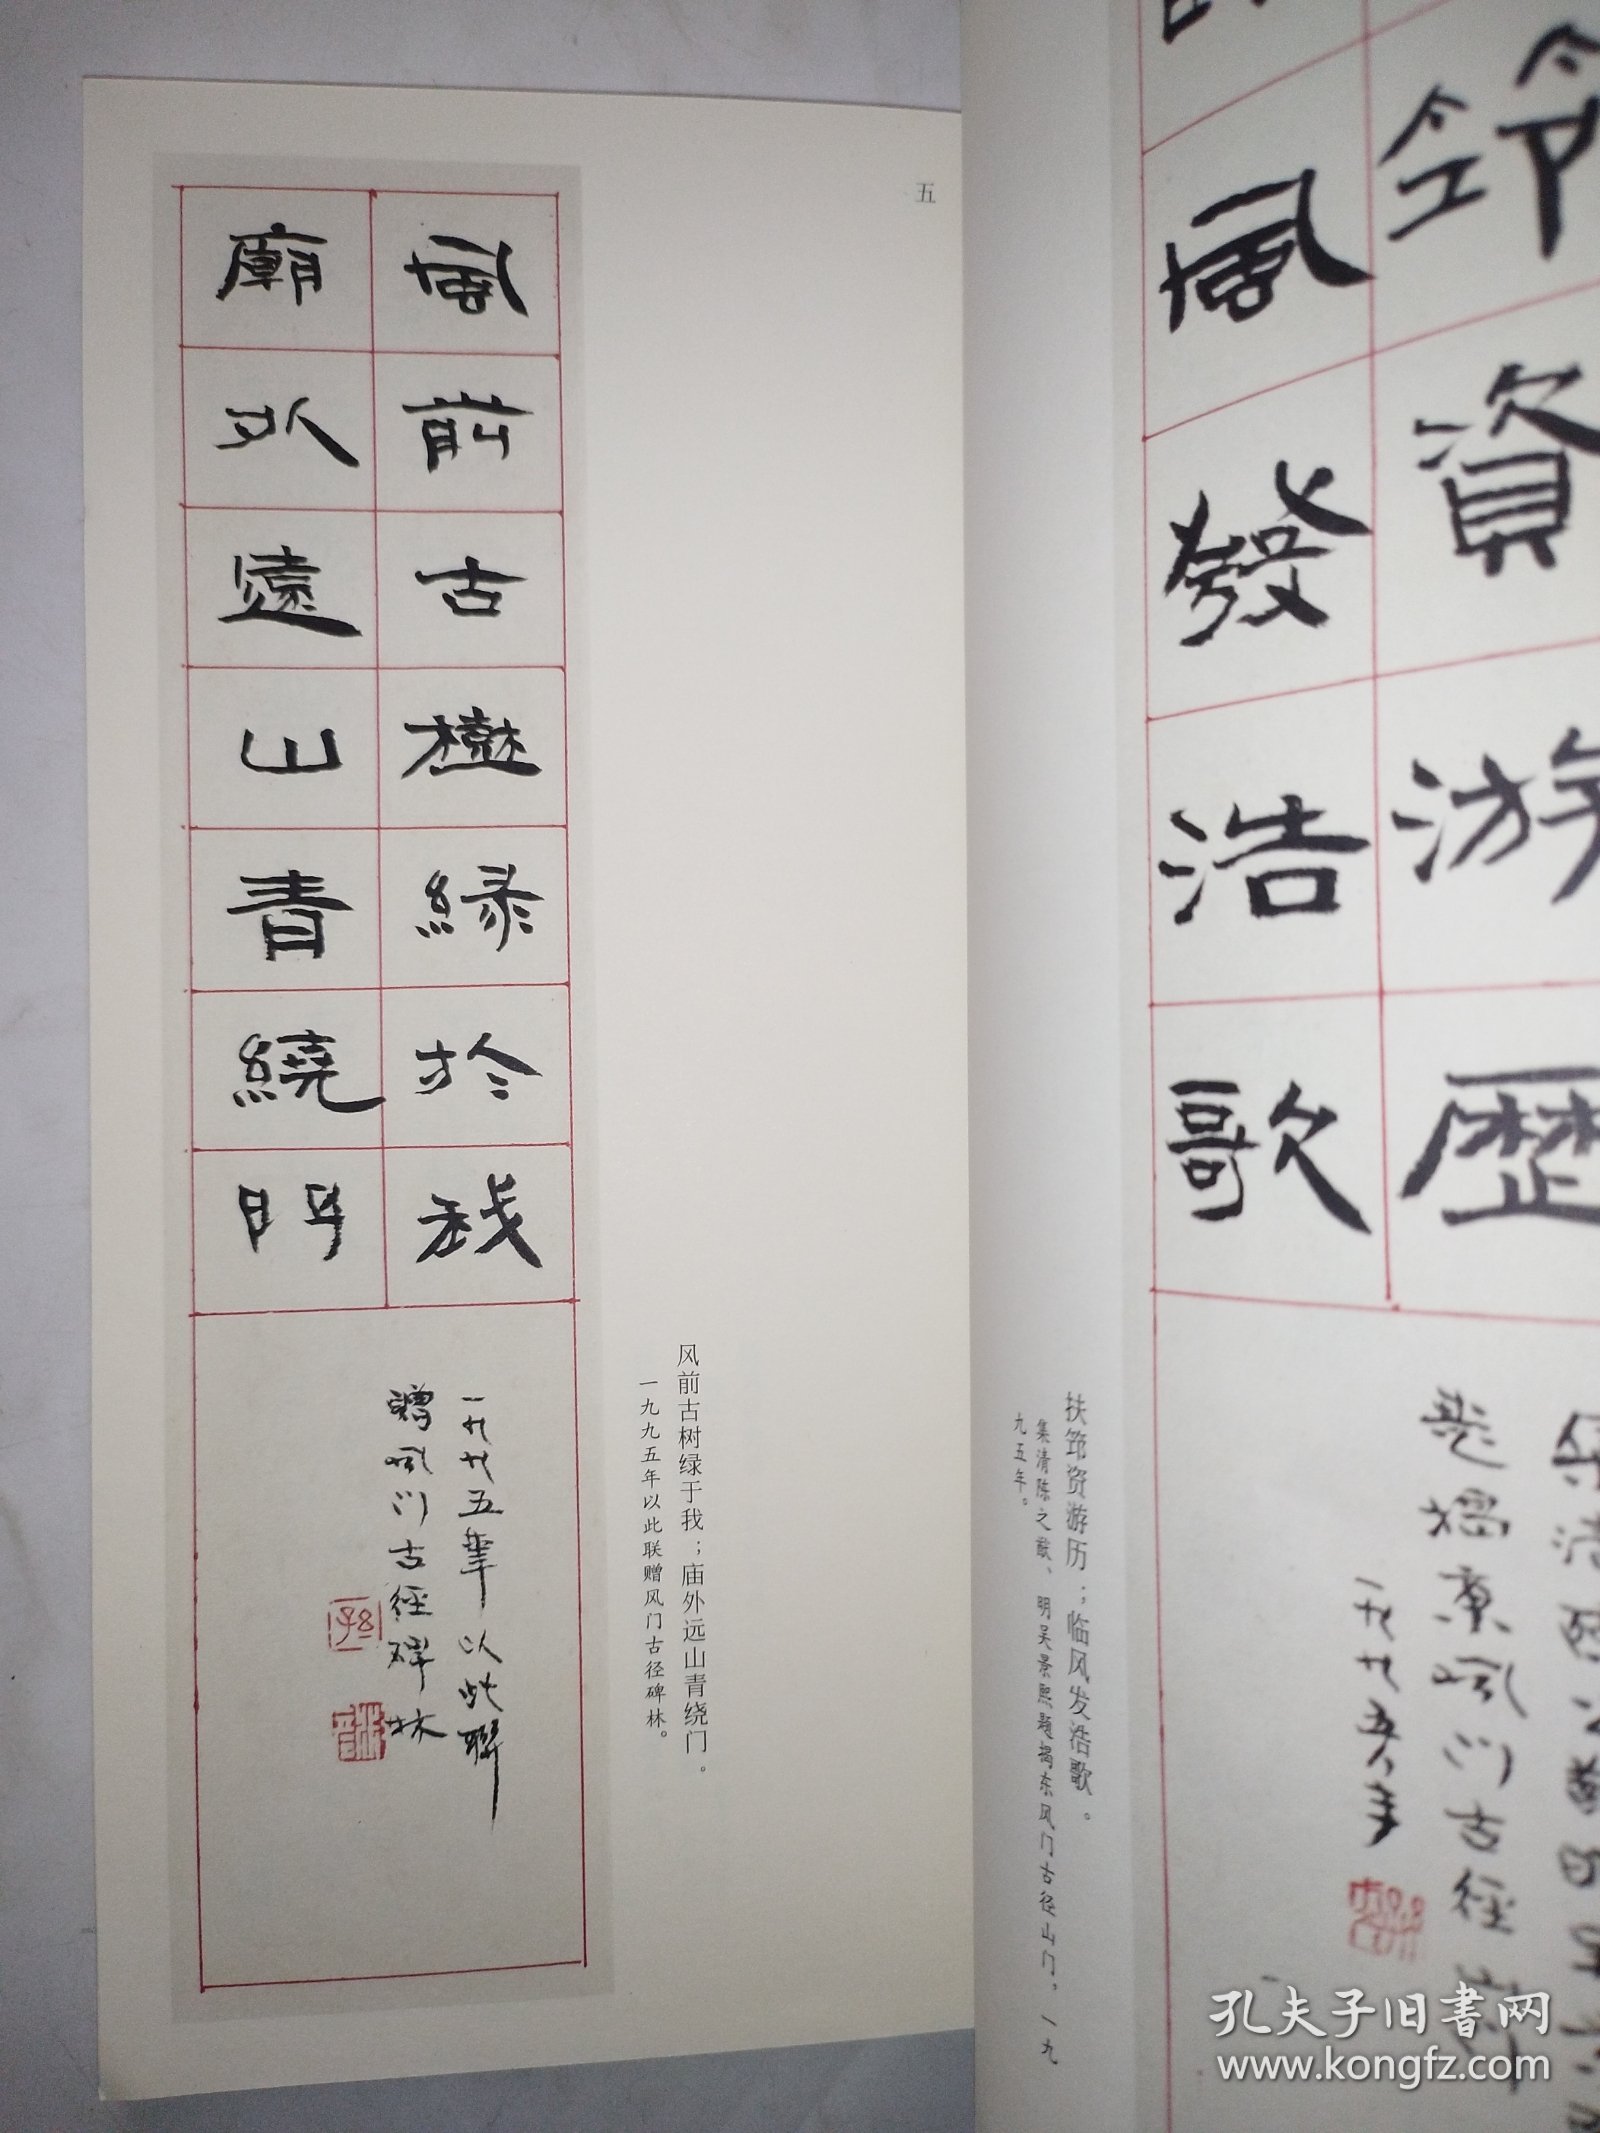 五
風前古樹緑於我
廟外遠山青繞門
一九九五年以此聯
贈風門古徑碑林
风前古树绿于我；庙外远山青绕门。
一九九五年以此联赠风门古径碑林。
筇資游歷
風發浩歌
題揭東風門古徑山門
一九九五年
扶筇资游历；临风发浩歌。
集清陈之歆、明吴景熙题揭东风门古径山门，一九
九五年。
孔夫子旧书网
www.kongfz.com